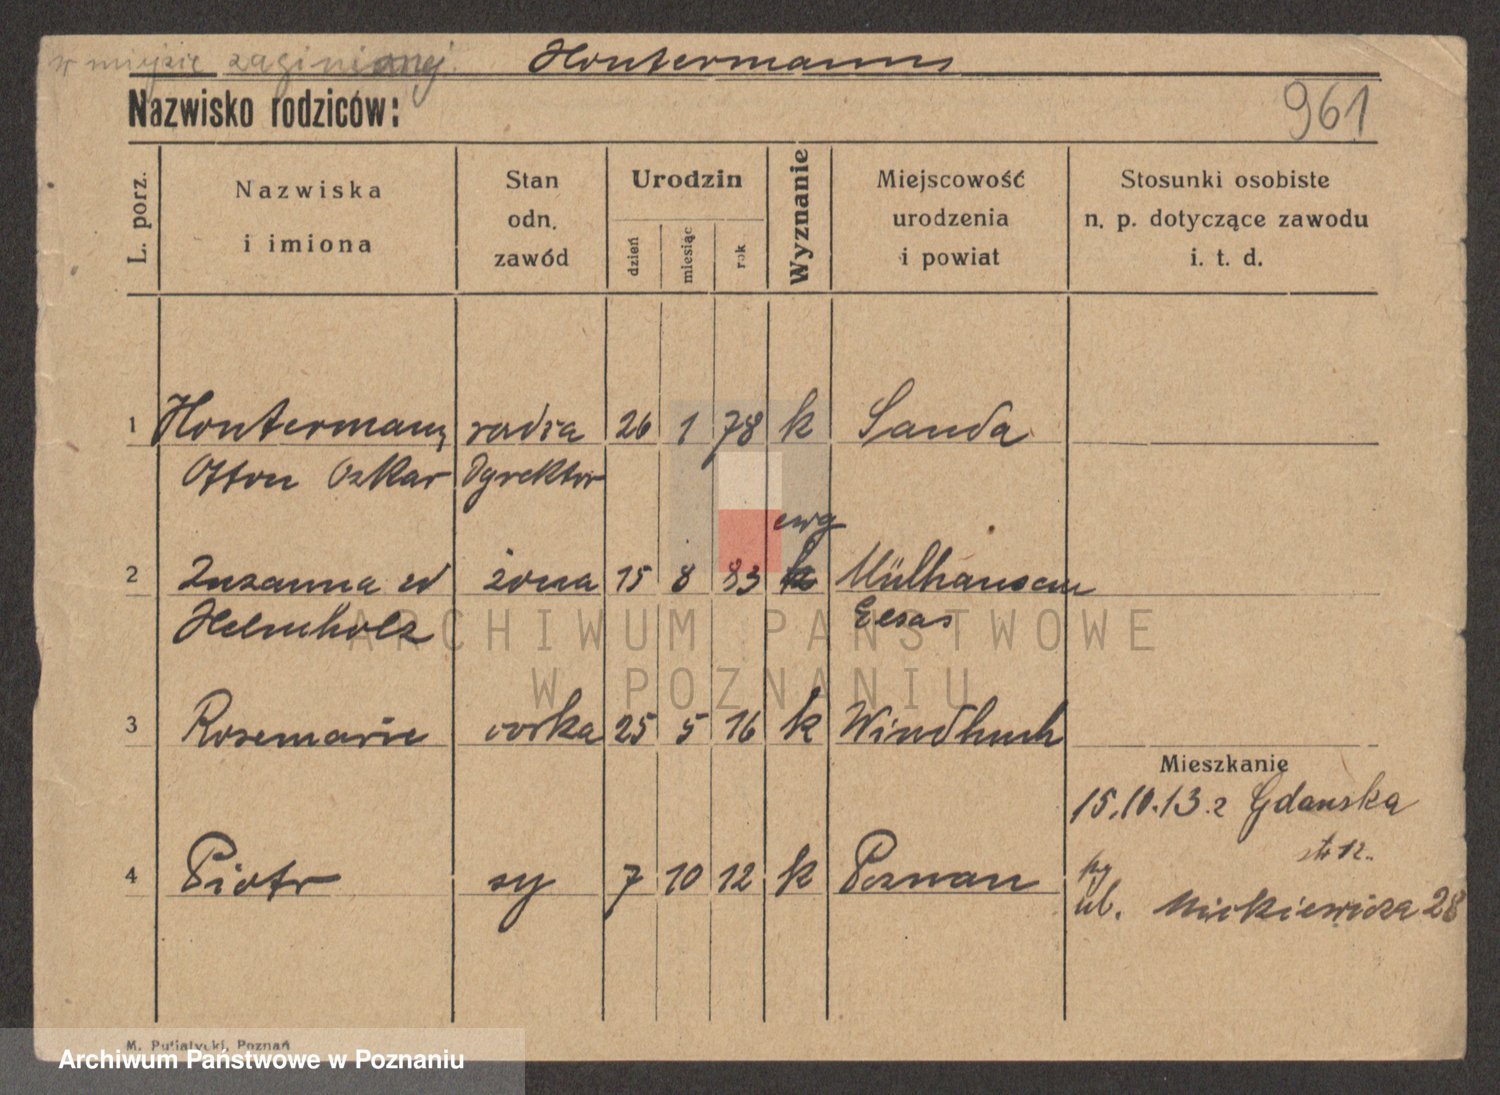 w miejsce zaginionej. Hontermanns
961
Nazwisko rodziców:
L. porz. Nazwiska i imiona Stan odn. zawód Urodzin dzień miesiąc rok Wyznanie Miejscowość urodzenia i powiat Stosunki osobiste n. p. dotyczące zawodu i. t. d.
1 Hontermanns radca 26 1 78 k Sanda
Otton Oskar Dyrektor
ewg
2 Zuzanna żona 15 8 83 k Mülhausen
Helmholz Elsas
3 Rosemarie corka 25 5 16 k Windhuk
Mieszkanie
15.10.13. z Gdanska
str 12.
4 Piotr sy 7 10 12 k Poznan
ul. Mickiewicza 28
M. Putiatycki, Poznań
Archiwum Państwowe w Poznaniu
ARCHIWUM PAŃSTWOWE
W POZNANIU